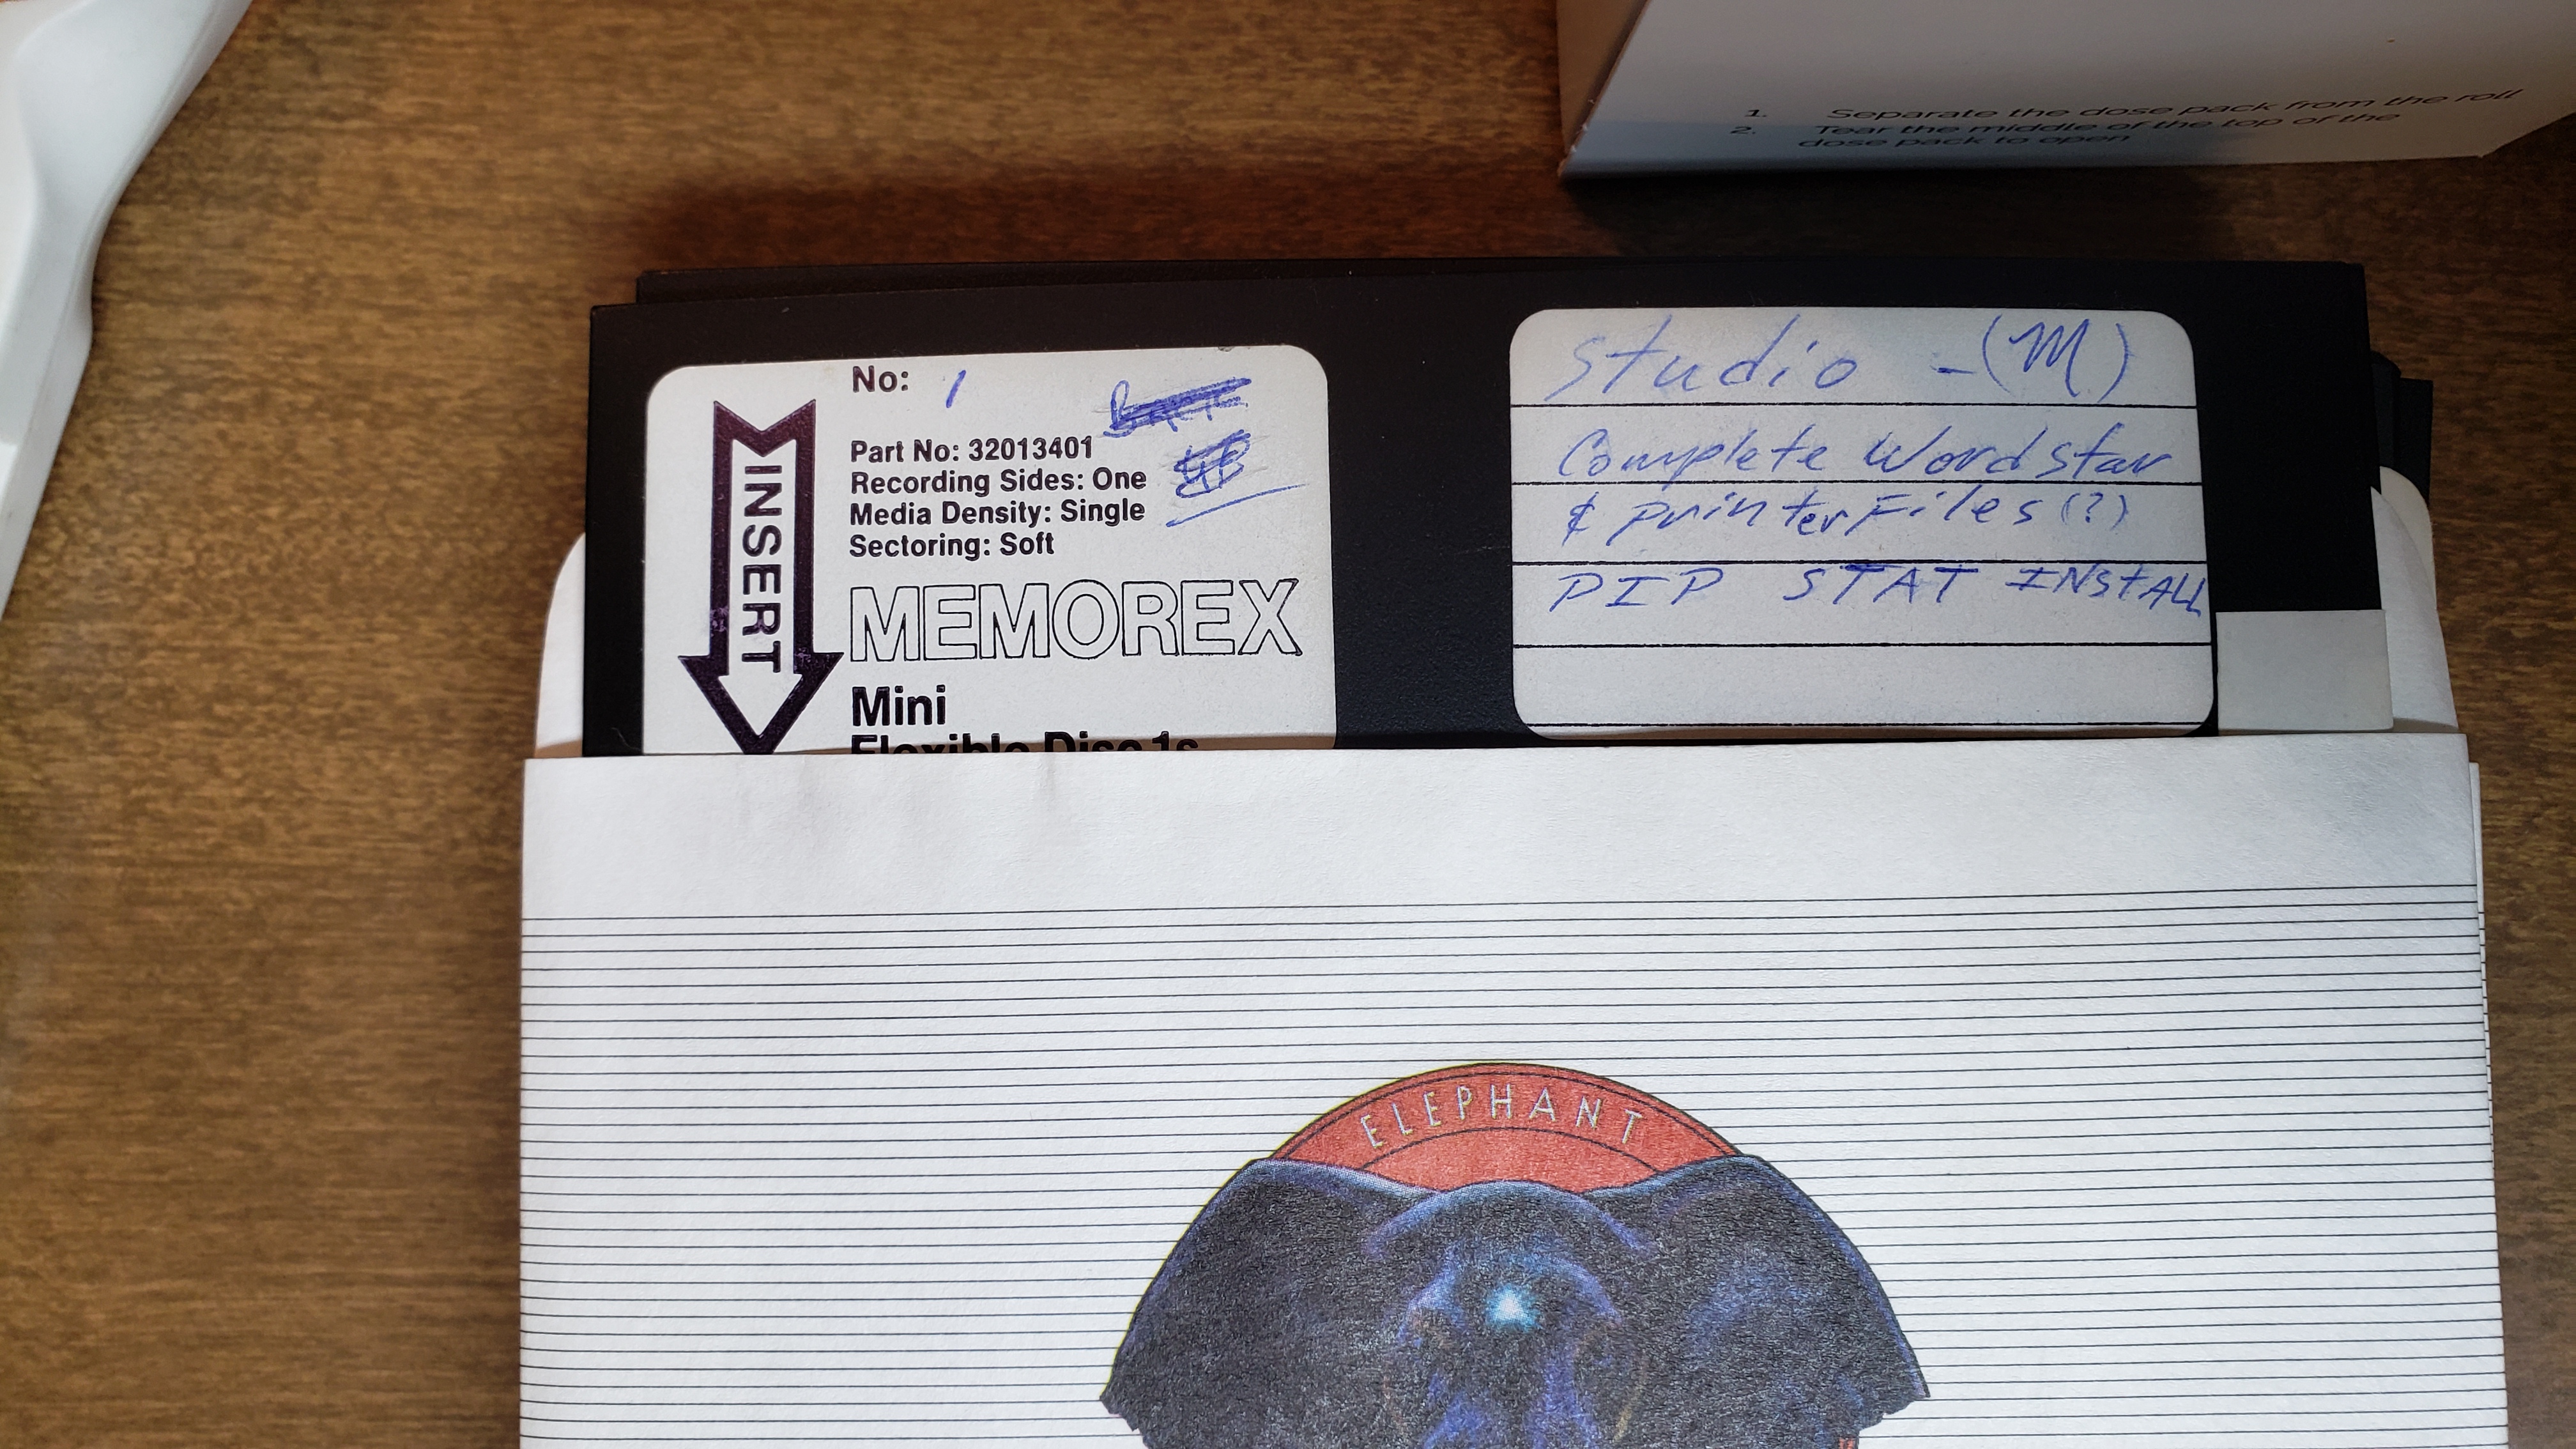 1. Separate the dose pack from the roll
2. Tear the middle of the top of the
dose pack to open
No: 1
Part No: 32013401
Recording Sides: One
Media Density: Single
Sectoring: Soft
INSERT
MEMOREX
Mini
Flexible Disc 1s
Studio - (M)
Complete Wordstar
& printer Files (?)
PIP STAT INStALL
ELEPHANT